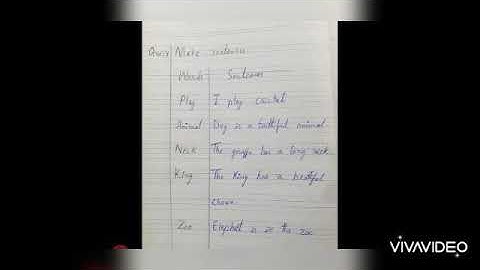 Make sentences
Words Sentences
Play I play cricket
Animal Dog is a faithful animal
Neck The giraffe has a long neck
King The King has a
Zoo Elephant is in the zoo
VIVAVIDEO